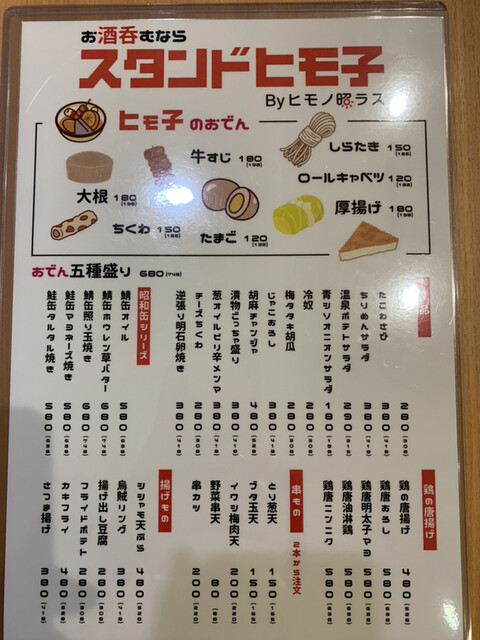 お酒呑むなら
スタンドヒモ子
Byヒモノ照ラス
ヒモ子のおでん
牛すじ 180
しらたき 150
大根 180
ロールキャベツ 120
ちくわ 150
たまご 120
厚揚げ 180
おでん五種盛り 680(748)
たこわさび 280
ちりめんサラダ 380
温泉ポテトサラダ 290
青シソオニオンサラダ 180
冷奴 280
梅タタキ胡瓜 280
じゃこおろし 380
胡麻チャンジャ 480
漬物ごっちゃ盛り 380
葱オイルピリ辛メンマ 380
チーズちくわ 280
逆張り明石卵焼き 380
昭和缶シリーズ
鯖缶オイル 580
鯖缶ホウレン草バター 680
鯖缶照り玉焼き 680
鮭缶マヨネーズ焼き 580
鮭缶タルタル焼き 580
鶏の唐揚げ
鶏の唐揚げ 480
鶏唐おろし 580
鶏唐明太子マヨ 580
鶏唐油淋鶏 580
鶏唐ニンニク 580
串もの 2本から注文
とり葱天 150
ブタ玉天 150
イワシ梅肉天 200
野菜串天 80
串カツ 200
揚げもの
シシャモ天ぷら 480
烏賊リング 380
揚げ出し豆腐 280
フライドポテト 280
カキフライ 480
さつま揚げ 380